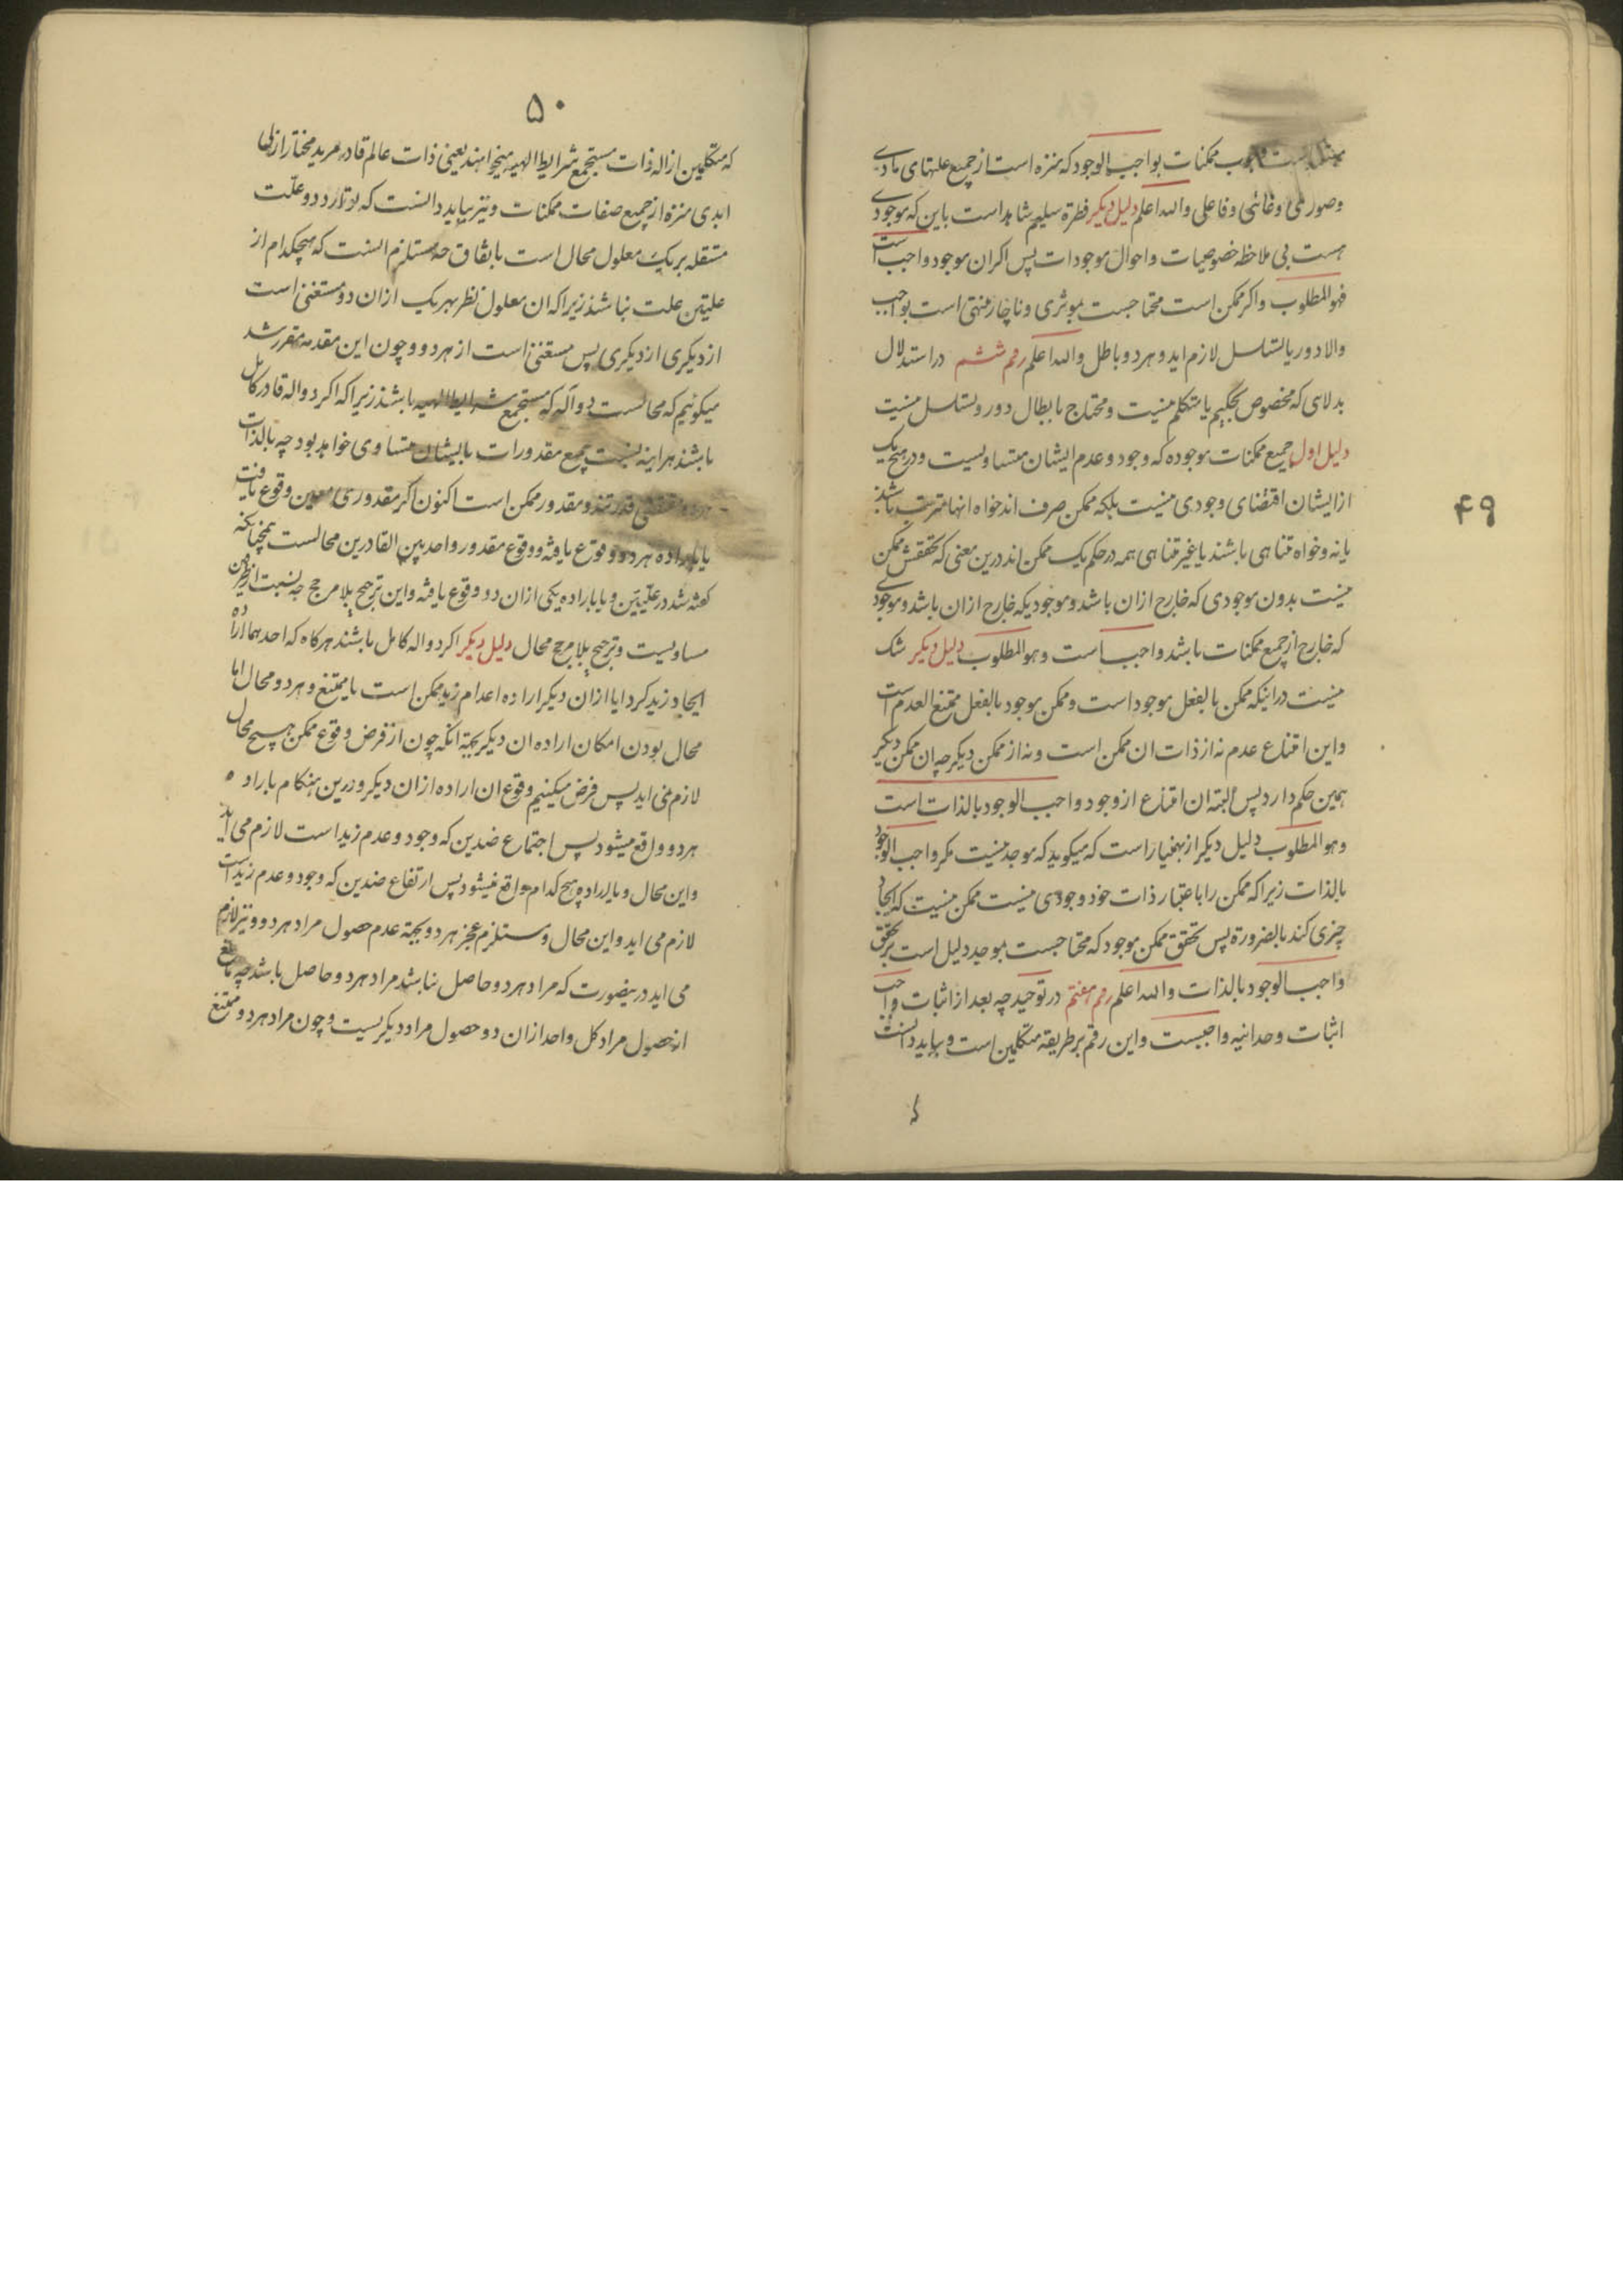 ممکنات بواجب الوجود که منزه است از جمیع علتهای مادی
وصوری وغائی وفاعلی والله اعلم دلیل دیکر فطرة سلیم شاهد است باین که موجودی
هست بی ملاحظه خصوصیات واحوال موجودات پس اکر ان موجود واجب است
فهو المطلوب واکر ممکن است محتاجست بموثری وناچار منتهی است بواجب
والا دور یا تسلسل لازم اید وهر دو باطل والله اعلم رقم ششم در استدلال
بدلایلی که مخصوص بحکیم یا متکلم نیست ومحتاج بابطال دور وتسلسل نیست
دلیل اول جمیع ممکنات موجوده که وجود وعدم ایشان متساویست ودر هیچ یک
از ایشان اقتضای وجودی نیست بلکه ممکن صرف اند خواه انها مترتب باشند
یا نه وخواه متناهی باشند یا غیر متناهی همه در حکم یک ممکن اند درین معنی که تحققش ممکن
نیست بدون موجودی که خارج ازان باشد وموجودیکه خارج ازان باشد وموجودی
که خارج از جمیع ممکنات باشد واجب است وهو المطلوب دلیل دیکر شک
نیست در اینکه ممکن بالفعل موجود است وممکن موجود بالفعل ممتنع العدم است
واین امتناع عدم نه از ذات ان ممکن است ونه از ممکن دیکر چه ان ممکن دیکر
همین حکم دارد پس البته ان امتناع از وجود واجب الوجود بالذات است
وهو المطلوب دلیل دیکر از بهمنیار است که میکوید که موجد نیست مکر واجب الوجود
بالذات زیرا که ممکن را باعتبار ذات خود وجودی نیست ممکن نیست که ایجاد
چیزی کند بالضرورة پس تحقق ممکن موجود که محتاجست بموجد دلیل است بر تحقق
واجب الوجود بالذات والله اعلم رقم هفتم در توحید چه بعد از اثبات واجب
اثبات وحدانیه واجبست واین رقم بر طریقه متکلمین است وبباید دانست
که
۴۹
۵۰
که متکلمین از اله ذات مستجمع شرایط الهیه میخواهند یعنی ذات عالم قادر مرید مختار ازلی
ابدی منزه از جمیع صفات ممکنات ونیز بباید دانست که توارد دو علّت
مستقله بر یک معلول محال است باتفاق چه مستلزم انست که هیچکدام از
علیتن علت نباشند زیرا که ان معلول نظر بهر یک ازان دو مستغنی است
از دیکری از دیکری پس مستغنی است از هر دو وچون این مقدمه مقرر شد
میکوئیم که محالست دو آله که مستجمع شرایط الهیه باشند زیرا که اکر دو اله قادر کامل
باشند هر اینه نسبت جمیع مقدورات بایشان متساوی خواهد بود چه بالذات
مقتضی قدرتند ومقدور ممکن است اکنون اکر مقدوری معین وقوع یافت
یا باراده هر دو وقوع یافته ووقوع مقدور واحد بین القادرین محالست همچنانکه
کفته شد در علّیتین ویا باراده یکی ازان دو وقوع یافته واین ترجیح بلا مرجح چه نسبت از طرفین
مساویست وترجیح بلا مرجح محال دلیل دیکر اکر دو اله کامل باشند هرکاه که احدهما اراده
ایجاد زید کرد ایا ازان دیکر اراده اعدام زید ممکن است یا ممتنع وهر دو محال اما
محال بودن امکان اراده ان دیکر بجهة انکه چون از فرض وقوع ممکن هیچ محال
لازم نمی اید پس فرض میکنیم وقوع ان اراده ازان دیکر ودرین هنکام یا اراده
هر دو واقع میشود پس اجتماع ضدین که وجود وعدم زید است لازم می اید
واین محال ویا اراده هیچ کدام واقع نمیشود پس ارتفاع ضدین که وجود وعدم زید است
لازم می اید واین محال ومستلزم عجز هر دو بجهة عدم حصول مراد هر دو ونیز لازم
می اید در ینصورت که مراد هر دو حاصل نباشد مراد هر دو حاصل باشد چه مانع
از حصول مراد کل واحد ازان دو حصول مراد دیکریست وچون مراد هر دو ممتنع